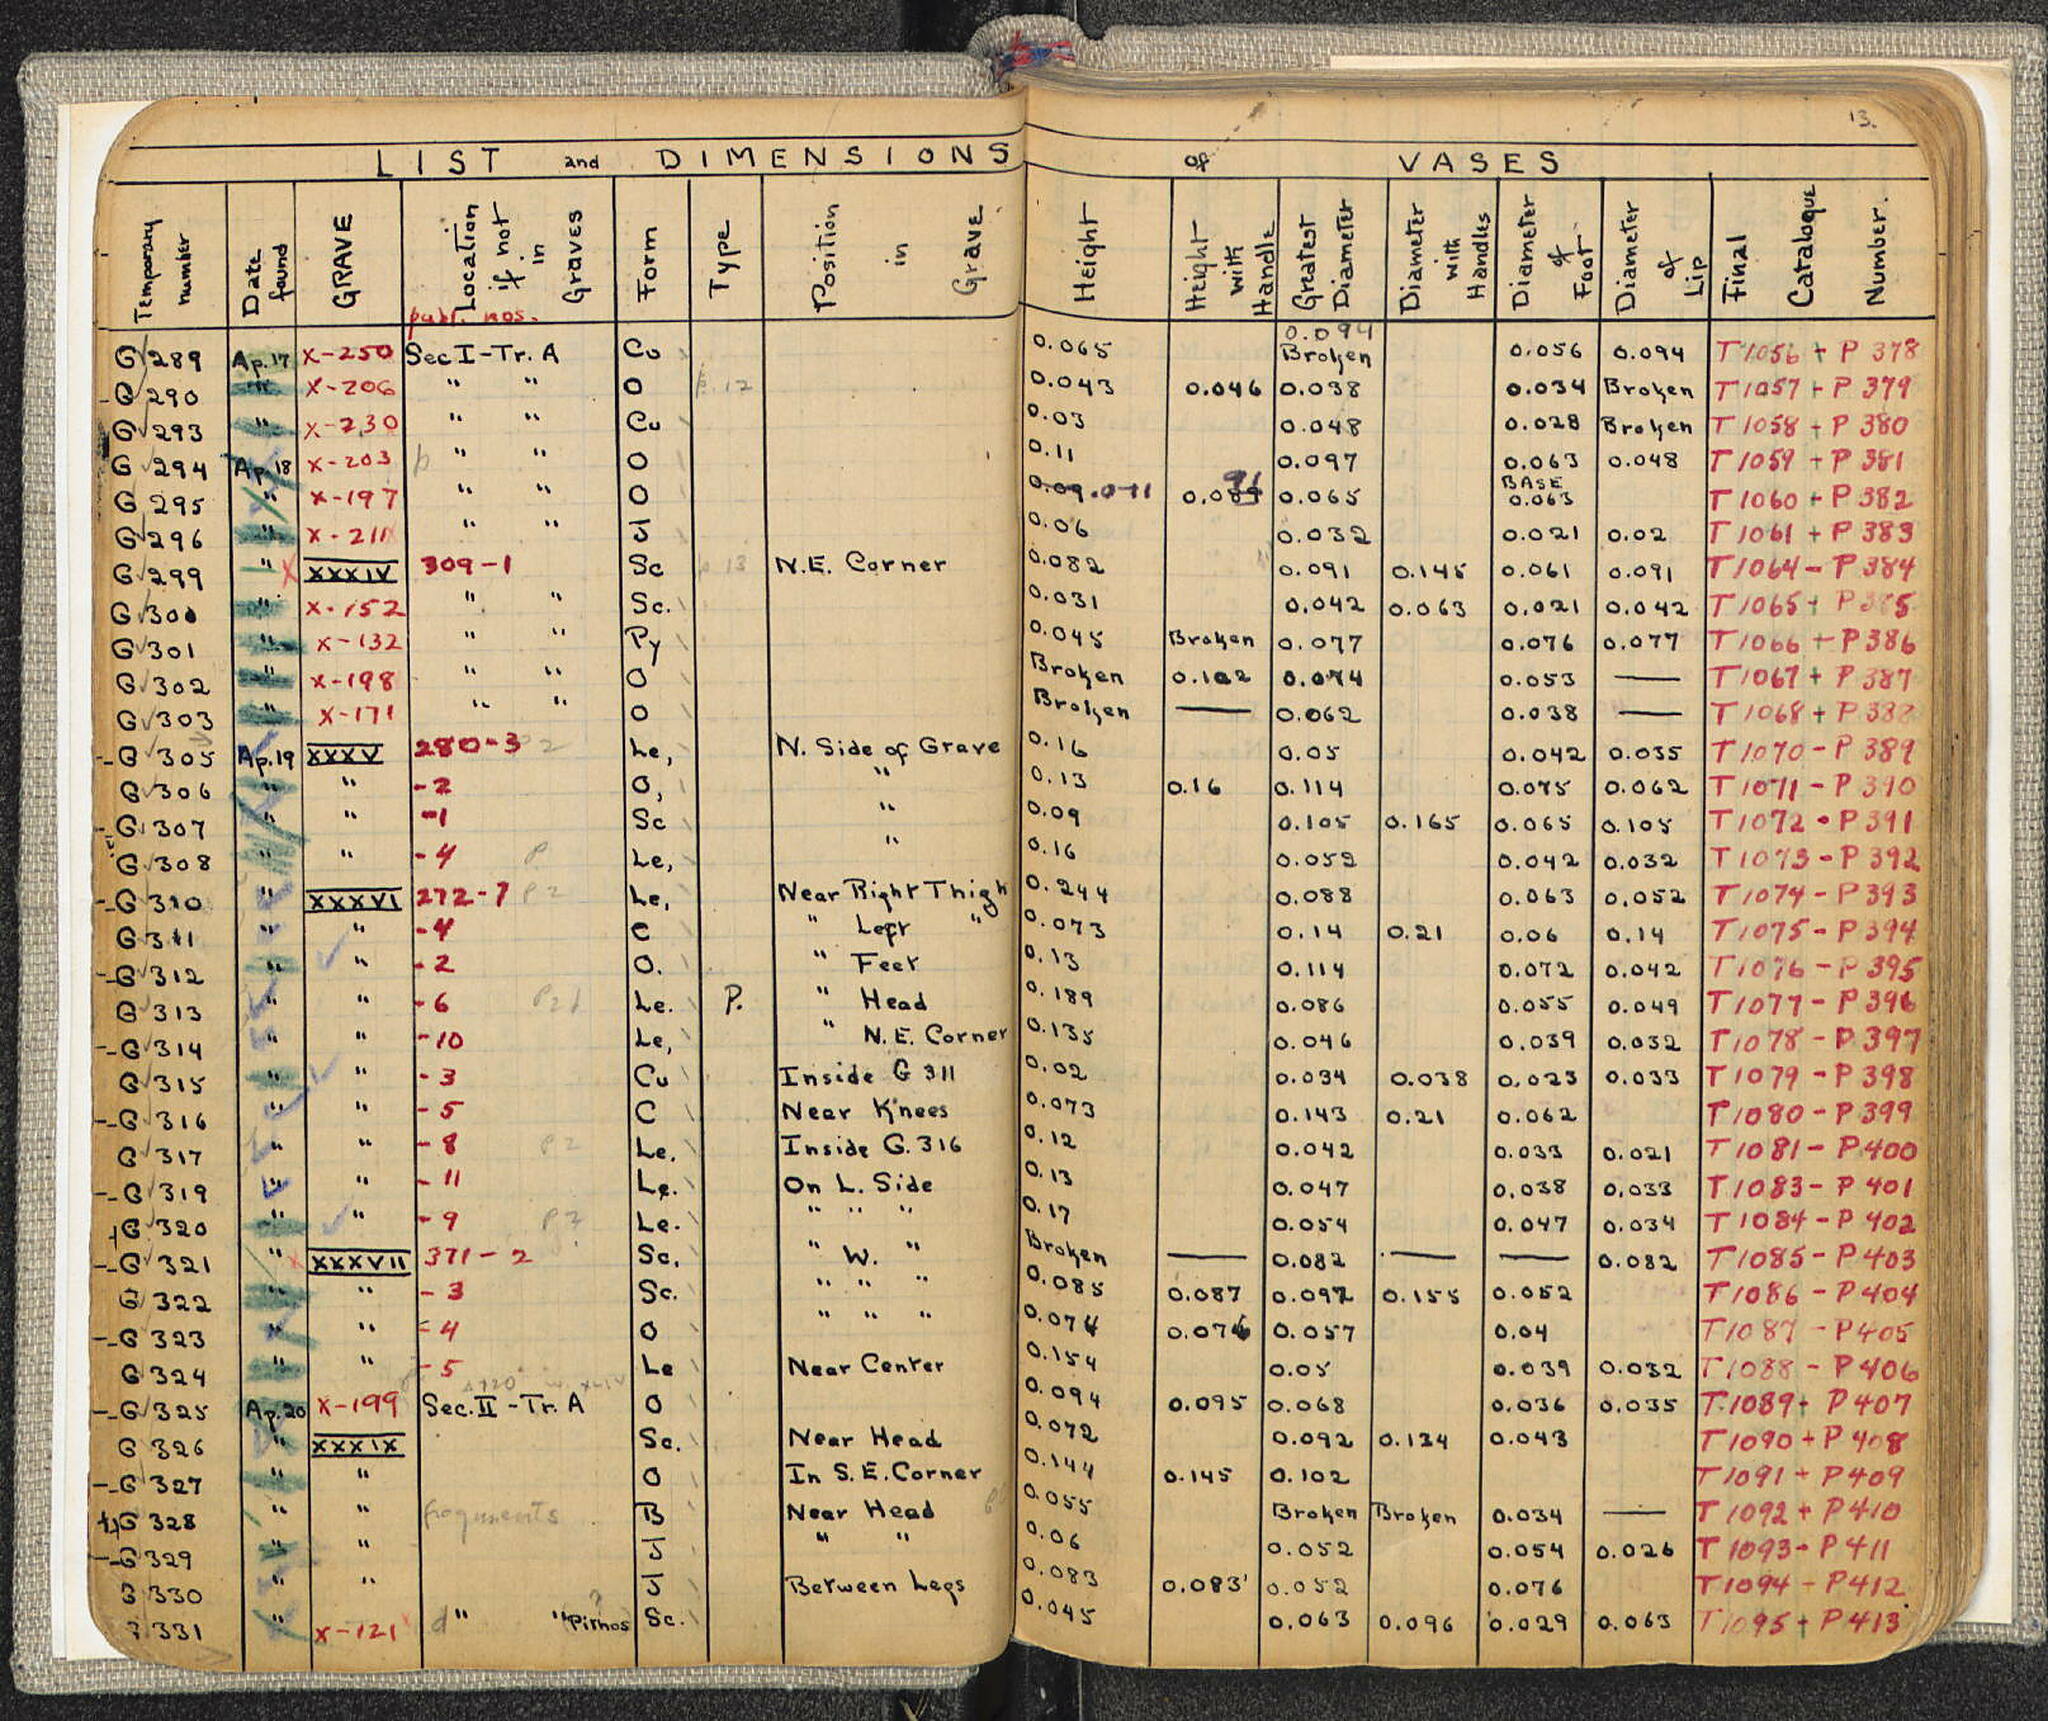 13.
LIST and DIMENSIONS of VASES
Temporary number Date found GRAVE Location if not in Graves Form Type Position in Grave Height Height with Handle Greatest Diameter Diameter with Handles Diameter of Foot Diameter of Lip Final Catalogue Number.
publ. nos.
G 289 Ap. 17 X-250 Sec I - Tr. A Cu 0.065 0.094 Broken 0.056 0.094 T 1056 + P 378
G 290 " X-206 " " O p. 12 0.043 0.046 0.038 0.034 Broken T 1057 + P 379
G 293 " X-230 " " Cu 0.03 0.048 0.028 Broken T 1058 + P 380
G 294 Ap. 18 X-203 p " " O 0.11 0.097 0.063 0.048 T 1059 + P 381
G 295 " X-197 " " O 0.09 0.065 BASE 0.063 T 1060 + P 382
G 296 " X-211 " " J 0.06 0.032 0.021 0.02 T 1061 + P 383
G 299 " X XXXIV 309-1 Sc p 13 N.E. Corner 0.082 0.091 0.145 0.061 0.091 T 1064 - P 384
G 300 " X-152 " " Sc. 0.031 0.042 0.063 0.021 0.042 T 1065 + P 385
G 301 " X-132 " " Py 0.045 Broken 0.077 0.076 0.077 T 1066 + P 386
G 302 " X-198 " " O Broken 0.102 0.074 0.053 — T 1067 + P 387
G 303 " X-171 " " O Broken — 0.062 0.038 — T 1068 + P 388
G 305 Ap. 19 XXXV 280-3 Le, N. Side of Grave 0.16 0.05 0.042 0.035 T 1070 - P 389
G 306 " " -2 O, " 0.13 0.16 0.114 0.075 0.062 T 1071 - P 390
G 307 " " -1 Sc " 0.09 0.105 0.165 0.065 0.105 T 1072 - P 391
G 308 " " -4 P. Le, " 0.16 0.052 0.042 0.032 T 1073 - P 392
G 310 " XXXVI 272-7 P2 Le, Near Right Thigh 0.244 0.088 0.063 0.052 T 1074 - P 393
G 311 " " -4 C " Left " 0.073 0.14 0.21 0.06 0.14 T 1075 - P 394
G 312 " " -2 O. " Feet 0.13 0.114 0.072 0.042 T 1076 - P 395
G 313 " " -6 Le. P. " Head 0.189 0.086 0.055 0.049 T 1077 - P 396
G 314 " " -10 Le, " N.E. Corner 0.135 0.046 0.039 0.032 T 1078 - P 397
G 315 " " -3 Cu Inside G 311 0.02 0.034 0.038 0.023 0.033 T 1079 - P 398
G 316 " " -5 C Near Knees 0.073 0.143 0.21 0.062 T 1080 - P 399
G 317 " " -8 P2 Le. Inside G. 316 0.12 0.042 0.033 0.021 T 1081 - P 400
G 319 " " -11 Le. On L. Side 0.13 0.047 0.038 0.033 T 1083 - P 401
G 320 " " -9 P ? Le. " " " 0.17 0.054 0.047 0.034 T 1084 - P 402
G 321 " X XXXVII 371-2 Sc. " W. " Broken — 0.082 — — 0.082 T 1085 - P 403
G 322 " " -3 Sc. " " " 0.085 0.087 0.097 0.155 0.052 T 1086 - P 404
G 323 " " -4 O " " " 0.074 0.076 0.057 0.04 T 1087 - P 405
G 324 " " -5 Le Near Center 0.154 0.05 0.039 0.032 T 1088 - P 406
G 325 Ap. 20 X-199 Sec. II - Tr. A O 0.094 0.095 0.068 0.036 0.035 T 1089 + P 407
G 326 " XXXIX Sc. Near Head 0.072 0.092 0.134 0.043 T 1090 + P 408
G 327 " " O In S.E. Corner 0.144 0.145 0.102 T 1091 + P 409
G 328 " " fragments B Near Head 0.055 Broken Broken 0.034 — T 1092 + P 410
G 329 " " J " " 0.06 0.052 0.054 0.026 T 1093 - P 411
G 330 " " J Between Legs 0.083 0.083 0.052 0.076 T 1094 - P 412
331 " X-121 d " " Pithos ? Sc. 0.045 0.063 0.096 0.029 0.063 T 1095 + P 413